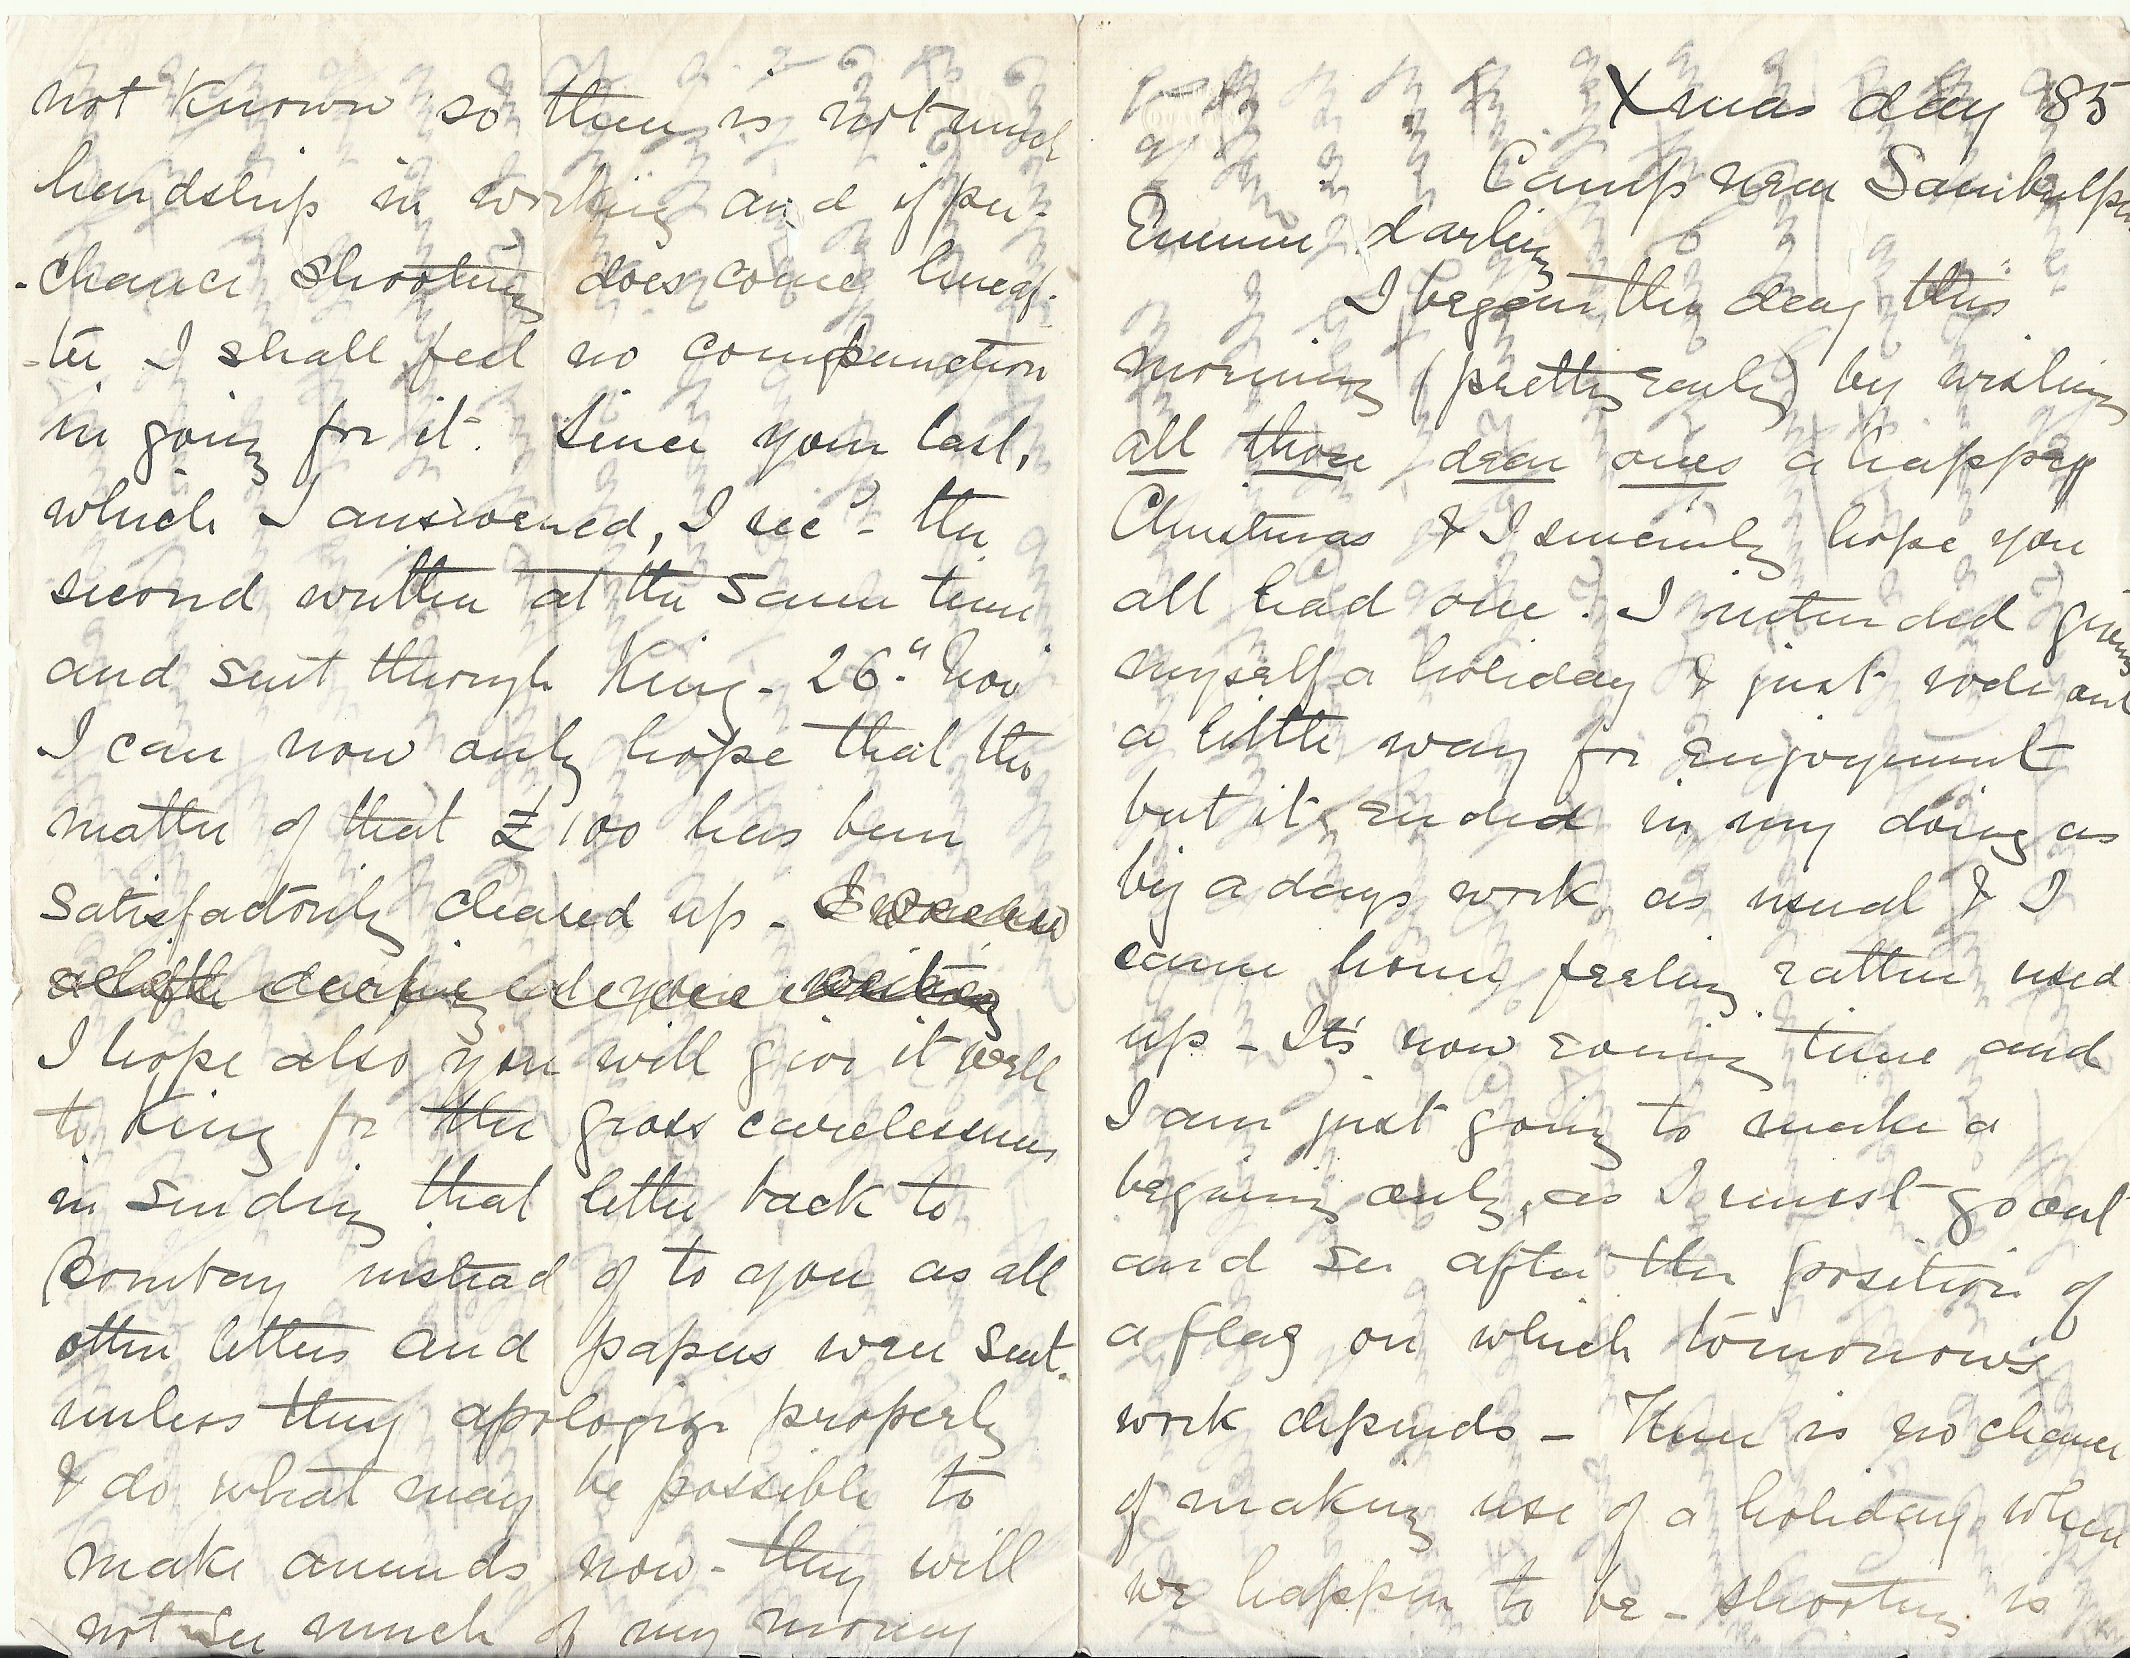 Xmas day 85
Camp near Sambulpur
Emmie darling
I began the day this
morning (pretty early) by wishing
all those dear ones a happy
Christmas & I sincerely hope you
all had one. I intended giving
myself a holiday & just rode out
a little way for enjoyment
but it ended in my doing as
big a days work as usual & I
came home feeling rather used
up - It's now evening time and
I am just going to make a
begining only, as I must go out
and see after the position of
a flag on which tomorrow's
work depends - There is no chance
of making use of a holiday when
we happen to be - shooting is
not known so there is not much
hardship in working and if per-
-chance shooting does come hereaf-
-ter I shall feel no compunction
in going for it. Since your last,
which I answered, I rec^d - the
second written at the same time
and sent through King - 26th Nov
I can now only hope that the
matter of that £100 has been
satisfactorily cleared up -
I hope also you will give it well
to King for the gross carelessness
in sending that letter back to
Bombay instead of to you as all
other letters and papers were sent.
unless they apologize properly
& do what may be possible to
make amends now - they will
not see much of my money